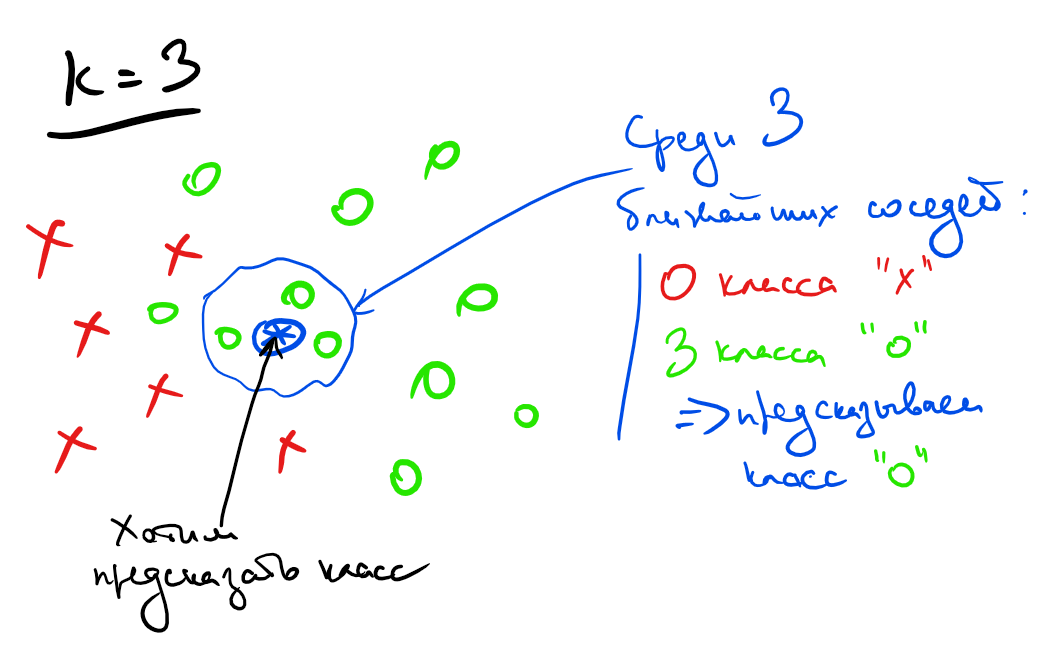 k = 3
Среди 3
ближайших соседей:
0 класса "x"
3 класса "o"
=> предсказываем
класс "o"
Хотим
предсказать класс